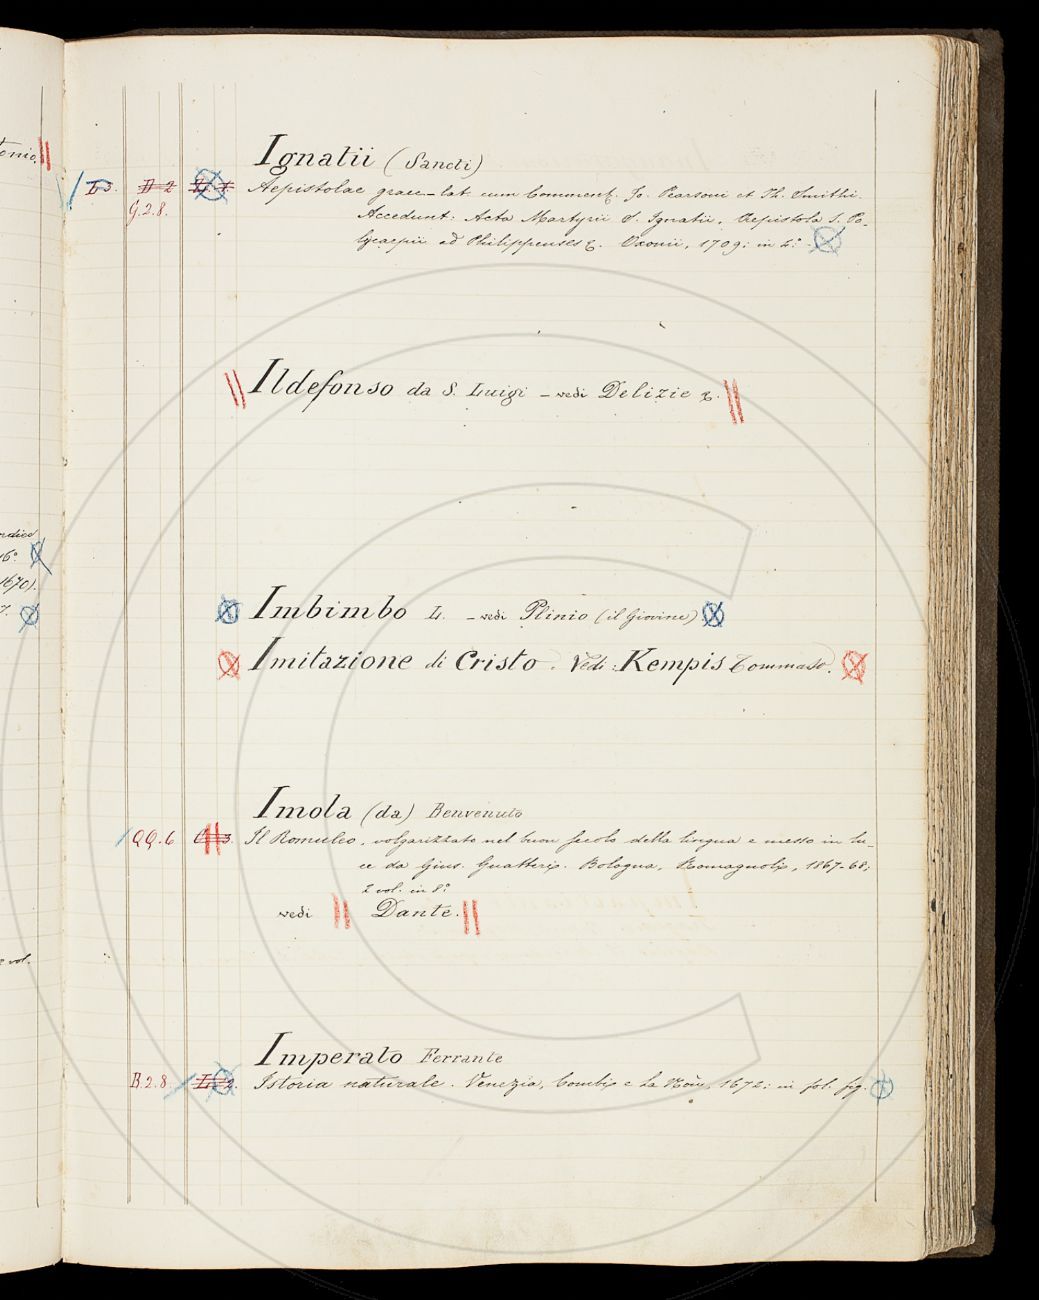 tonio.
Ignatii (Sancti)
G.2.8.
Aepistolae graec-lat. cum Comment. Jo. Pearsoni et Th. Smithii.
Accedunt: Acta Martyrii S. Ignatii, Aepistola S. Po-
lycarpii ad Philippenses &. Oxonii, 1709; in 4.°
Ildefonso da S. Luigi - vedi Delizie &.
16°
1670).
Imbimbo L. - vedi Plinio (il Giovine)
Imitazione di Cristo. Vedi: Kempis Tommaso.
Imola (da) Benvenuto
QQ.6
Il Romuleo, volgarizzato nel buon secolo della lingua e messo in lu-
ce da Gius. Guatteri. Bologna, Romagnoli, 1867-68;
2 vol. in 8.°
vedi Dante.
vol.
Imperato Ferrante
B.2.8.
Istoria naturale. Venezia, Combi e La Noù, 1672; in fol. fig.